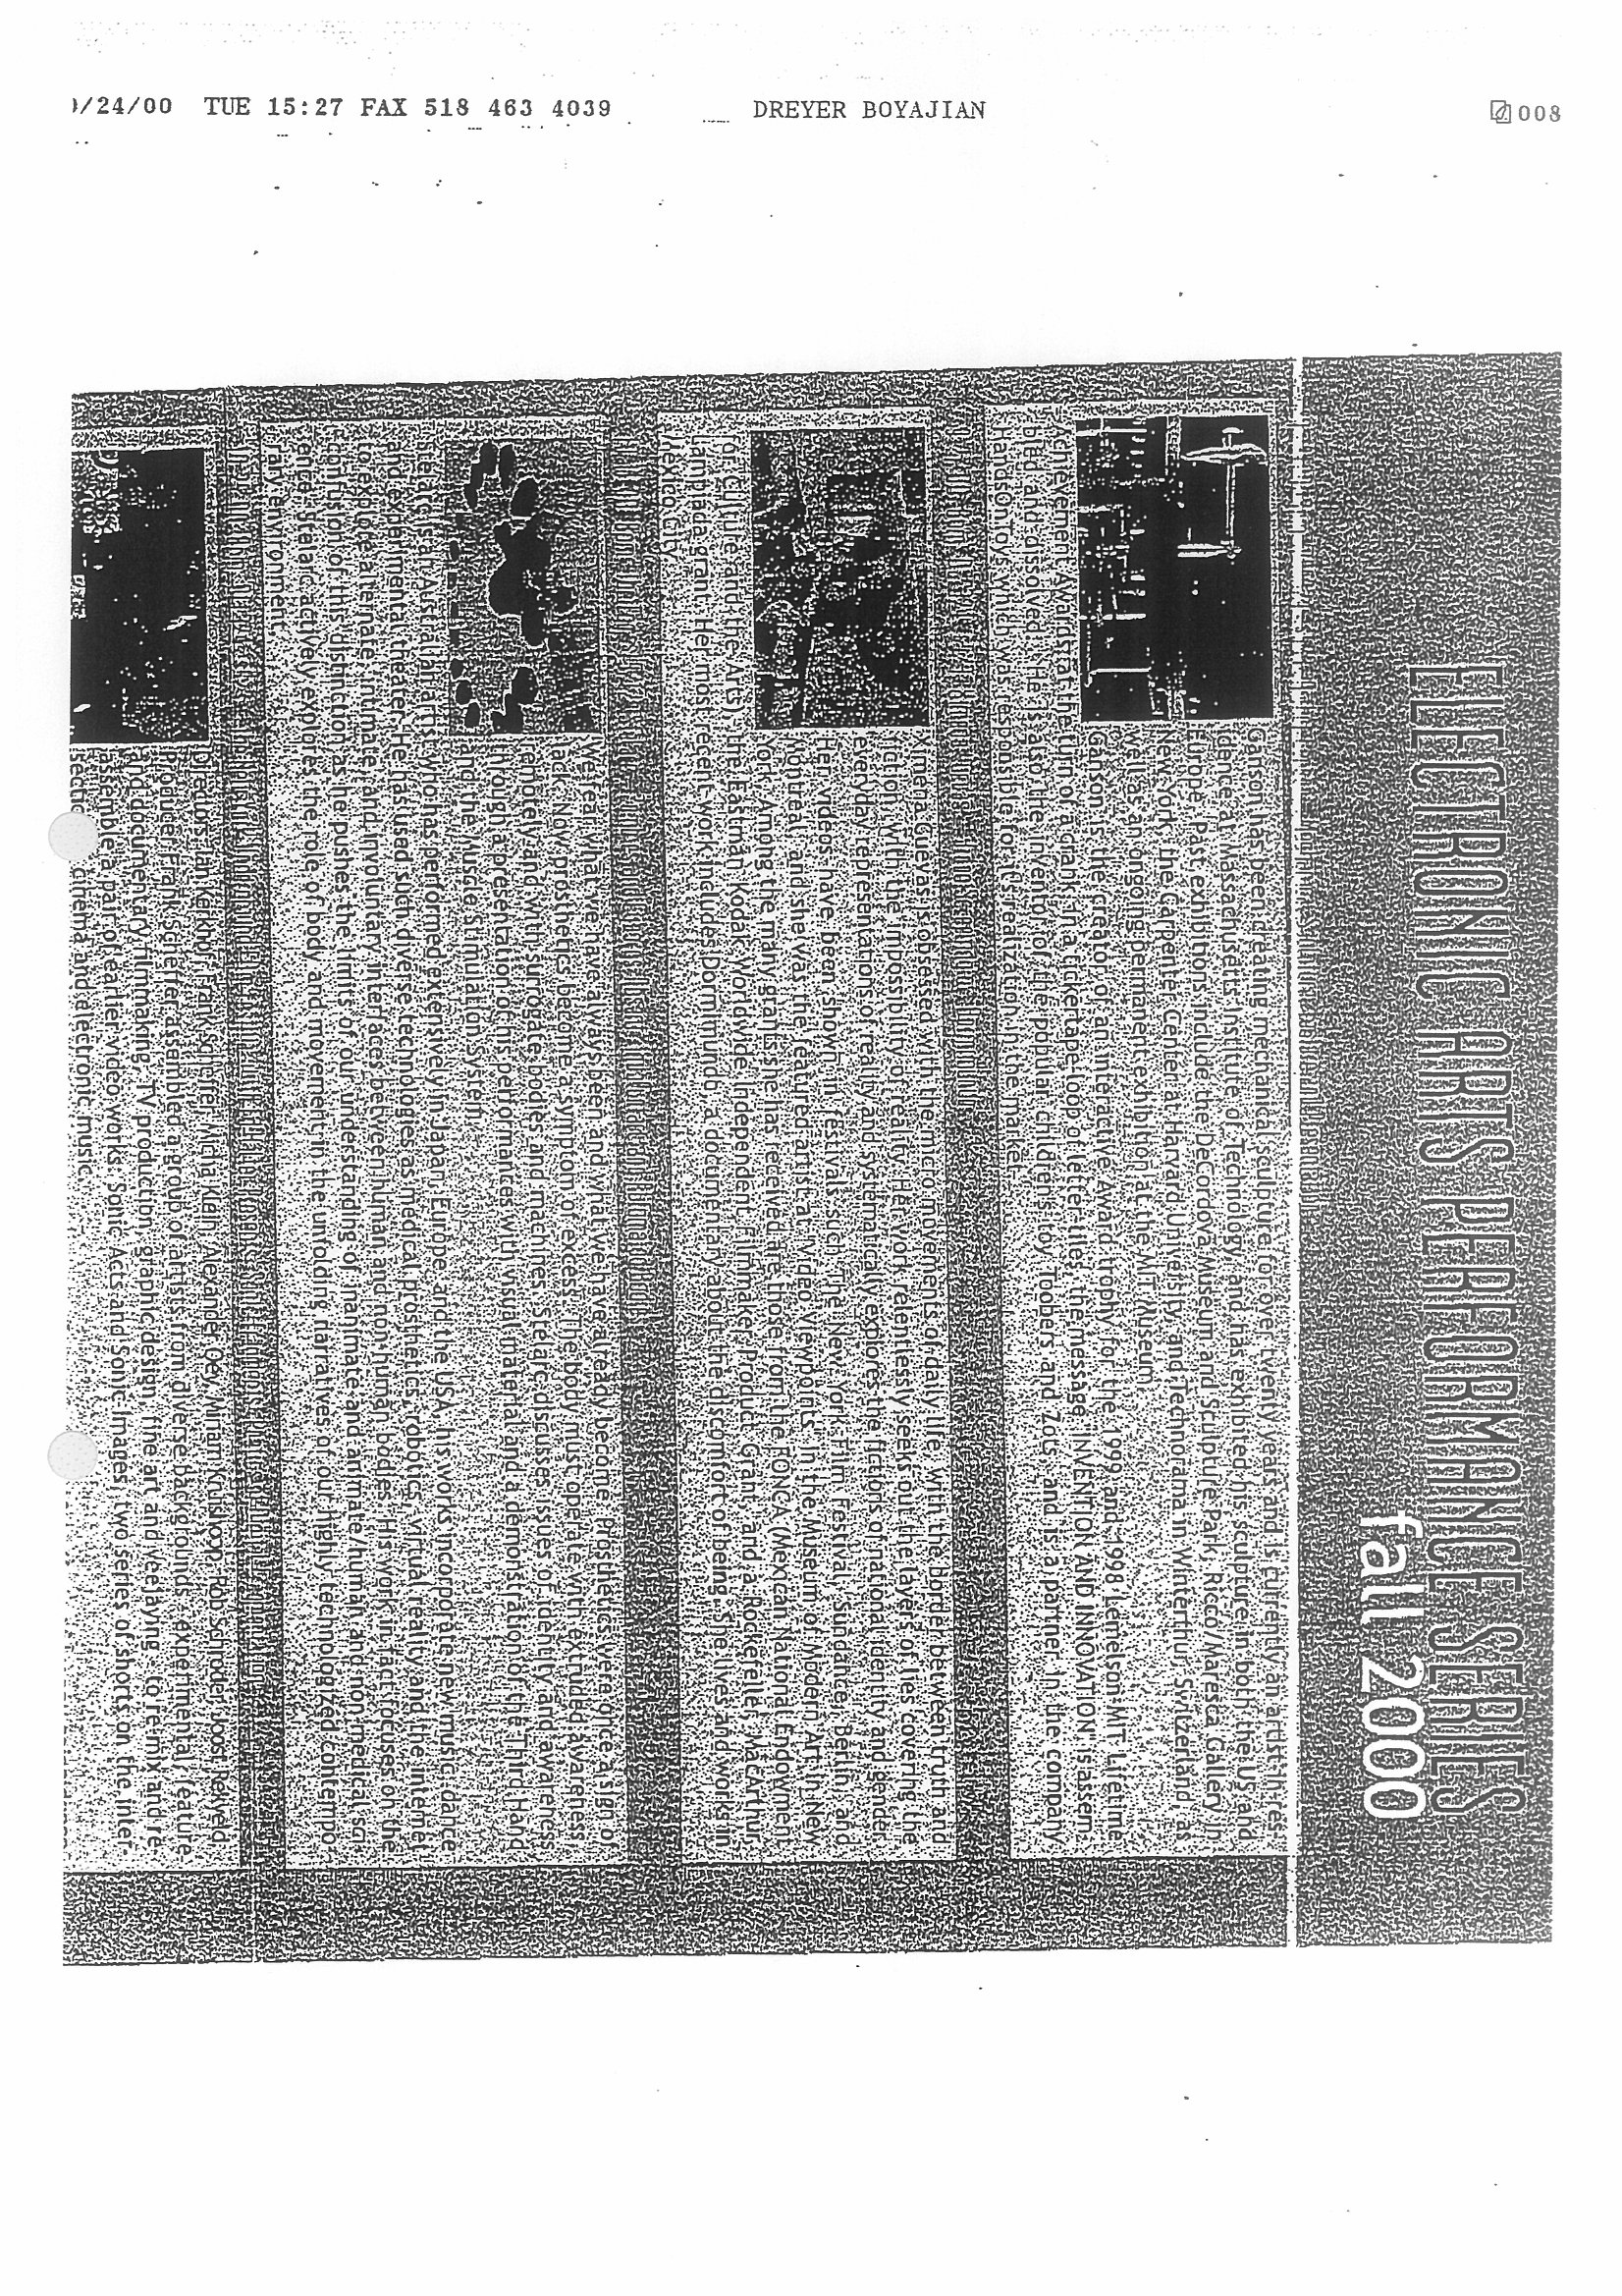 /24/00 TUE 15:27 FAX 518 463 4039 DREYER BOYAJIAN 008
ELECTRONIC ARTS PERFORMANCE SERIES
fall 2000
Ganson has been creating mechanical sculpture for over twenty years and is currently an artist-in-res-
idence at Massachusetts Institute of Technology, and has exhibited his sculpture in both the US and
Europe. Past exhibitions include the DeCordova Museum and Sculpture Park, Ricco/Maresca Gallery in
New York, the Carpenter Center at Harvard University, and Technorama in Winterthur, Switzerland as
well as an ongoing permanent exhibition at the MIT Museum.
Ganson is the creator of an interactive Award trophy for the 1999 and 1998 Lemelson-MIT Lifetime
Achievement Awards: at the turn of a crank in a tickertape loop of letter-tiles, the message "INVENTION AND INNOVATION" is assem-
bled and dissolved. He is also the inventor of the popular children's toy Toobers and Zots and is a partner in the company
HandsonToys which was responsible for it's realization in the market.
Ximena Cuevas is obsessed with the micro movements of daily life, with the border between truth and
fiction, with the impossibility of reality. Her work relentlessly seeks out the layers of lies covering the
everyday representations of reality and systematically explores the fictions of national identity and gender.
Her videos have been shown in festivals such The New York Film Festival, Sundance, Berlin, and
Montreal, and she was the featured artist at "Video Viewpoints" in the Museum of Modern Art in New
York. Among the many grants she has received are those from the FONCA (Mexican National Endowment
for Culture and the Arts), the Eastman Kodak Worldwide Independent Filmmaker Product Grant, and a Rockefeller, MacArthur,
Lampadia grant. Her most recent work includes Dormimundo, a documentary about the discomfort of being. She lives and works in
Mexico City.
We fear what we have always been and what we have already become. Prosthetics were once a sign of
lack. Now prosthetics become a symptom of excess. The body must operate with extruded awareness,
remotely and with surrogate bodies and machines. Stelarc discusses issues of identity and awareness
through a presentation of his performances with visual material and a demonstration of the Third Hand
and the Muscle Stimulation System.
Stelarc is an Australian artist who has performed extensively in Japan, Europe, and the USA. His works incorporate new music, dance
and experimental theater. He has used such diverse technologies as medical prosthetics, robotics, virtual reality and the internet
to explore alternate, intimate, and involuntary interfaces between human and non-human bodies. His work in fact focuses on the
confusion of this distinction as he pushes the limits of our understanding of inanimate and animate/human and non medical sci-
ence. Stelarc actively explores the role of body and movement in the unfolding narratives of our highly technologized contempo-
rary environment.
Directors Ian Kerkhof, Frank Scheffer, Micha Klein, Alexander Oey, Miriam Kruishoop, Rob Schroder, Joost Rekveld
producer Frank Scheffer assembled a group of artists from diverse backgrounds - experimental, feature
and documentary filmmaking, TV production, graphic design, fine art and veejaying - to remix and re-
assemble a pair of earlier video works: Sonic Acts and Sonic Images, two series of shorts on the inter-
section cinema and electronic music.